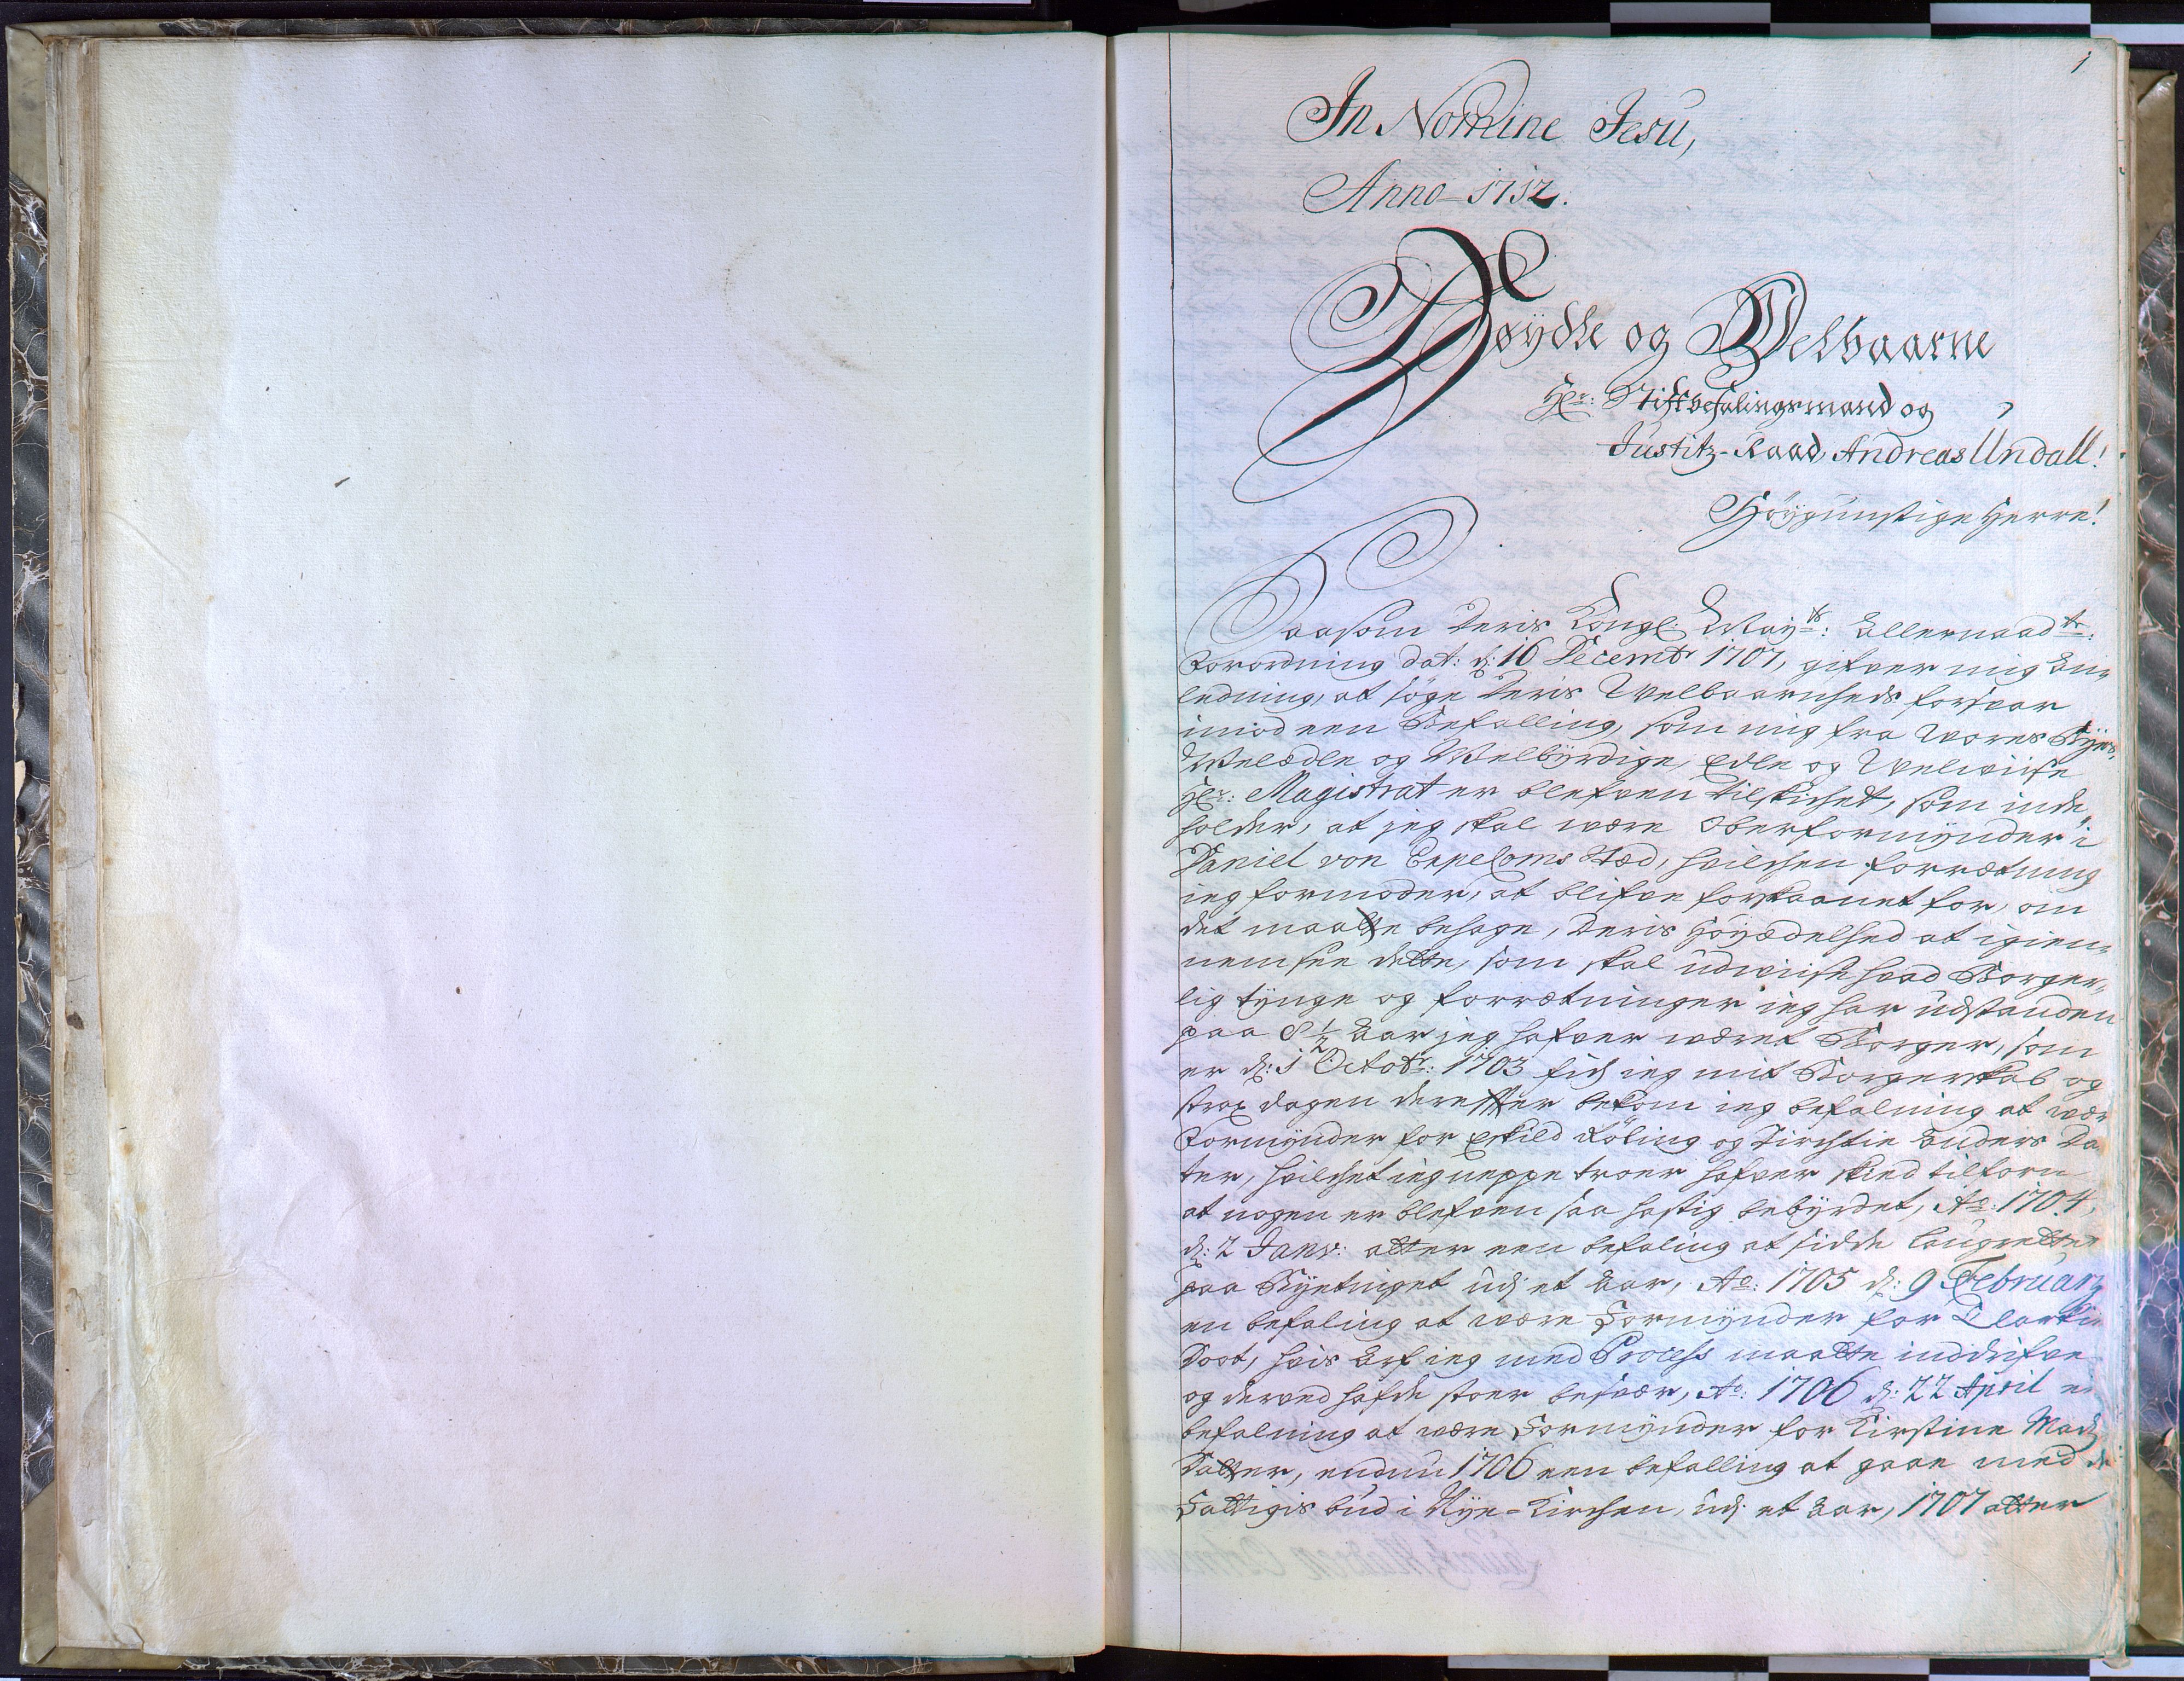 1
In Nomine Jesu,
Anno 1712.
Høÿædle og Velbaarne
Hr: Stiftbefalingsmand og
Justitz-Raad, Andreas Undall!
Höygunstige Herre!
Saasom Deris Kongl. Mayts: Allernaadte:
Forordning dat: d: 16 Decembr 1707, gifver mig An-
ledning, at söge Deris Welbaarnheds forsvar
imod een Befalling, som mig fra Vores Byes
Welædle og Welbÿrdige, Edle og Velviise
Hr: Magistrat er blefven tilskichet, som inde-
holder, at jeg skal være Oberformÿnder i
Daniel von Stæd, hvilchen forrætning
ieg formoder, at blifve forskaanet for, om
det maatte behage, Deris Höyædelhed at igien-
nemsee dette, som skal udviise hvad Borger-
lig tÿnge og forrætninger ieg har udstanden
paa 8 1/2 Aar jeg hafver været Borger, som
er d: 1 Octobr: 1703 fich ieg mit Borgerskab og
strax dagen derefter bekom ieg befalning at vær
Formÿnder for Eskild Röling og Kirstin Anders Da
ter, hvilchet ieg neppe troer hafver skeed tilforn
at nogen er blefven saa hastig bebÿrdet, Ao: 1704,
d: 2 Janv: atter een befaling at sidde Laugretter
paa Byetinget udj et Aar, Ao: 1705 d: 9 Februarj
en befaling at være Formÿnder for
Doot, hvis Arf ieg med Process maatte inddrifve
og derved hafde stoer besvær, Ao: 1706 d: 22 April e
befalning at være Formÿnder for Kirstine Mads
Datter, endnu 1706 een befalling at gaae med de
Fattigis bud i Nÿe-Kirchen, udj et Aar, 1707 atter